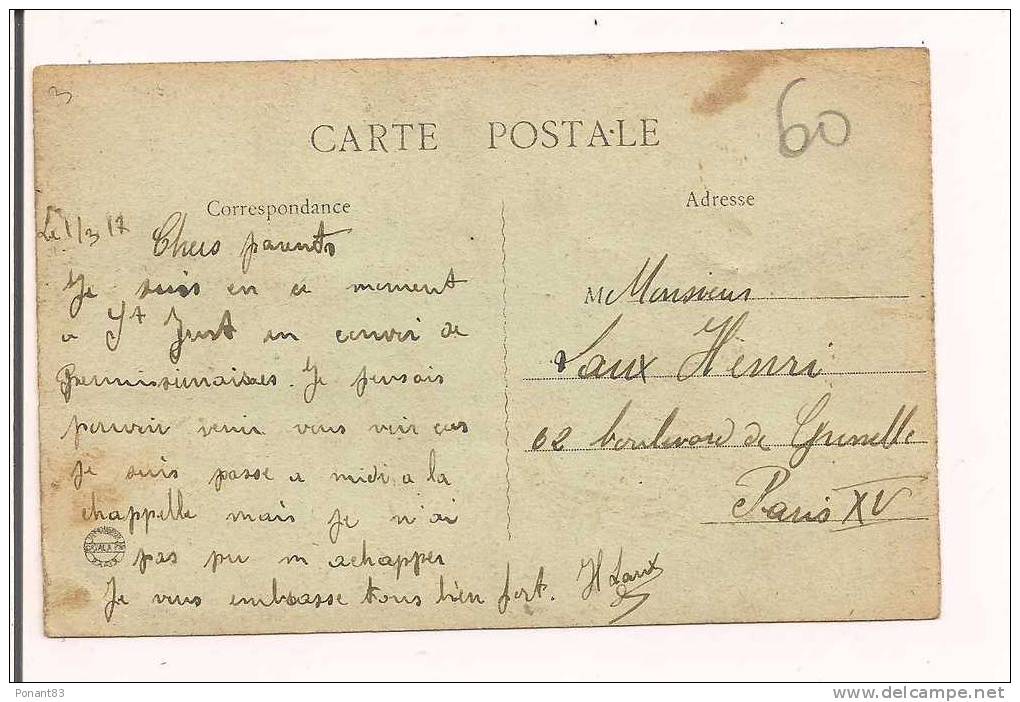 3
60
CARTE POSTALE
Correspondance
Adresse
Le 1/3 17
Chers parents
Je suis en ce moment
a St Just en convoi de
Je pensais
pouvoir venir vous voir car
je suis passe a midi a la
chappelle mais je n'ai
pas pu m achapper
Je vous embrasse tous bien fort. H Laux
M Monsieur
Laux Henri
62 boulevard de Grenelle
Paris XV
Ponant83
www.delcampe.net